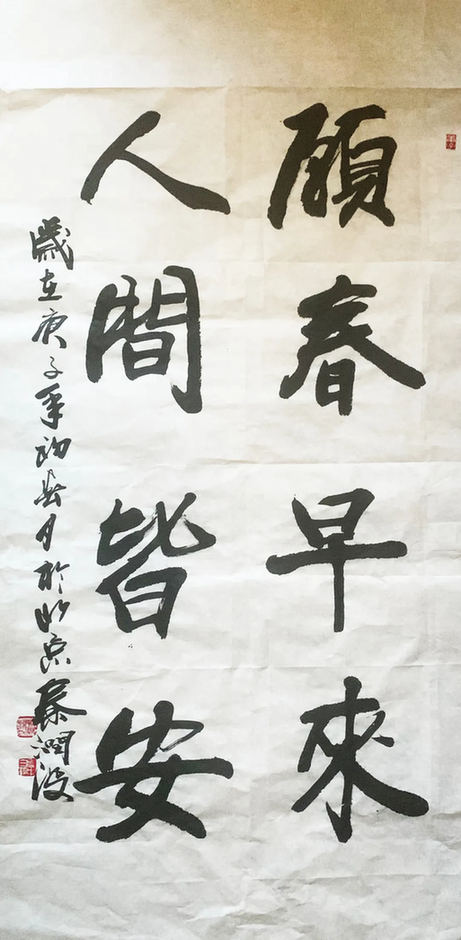 願春早來
人間皆安
歲在庚子年初春月於北京秦潤波